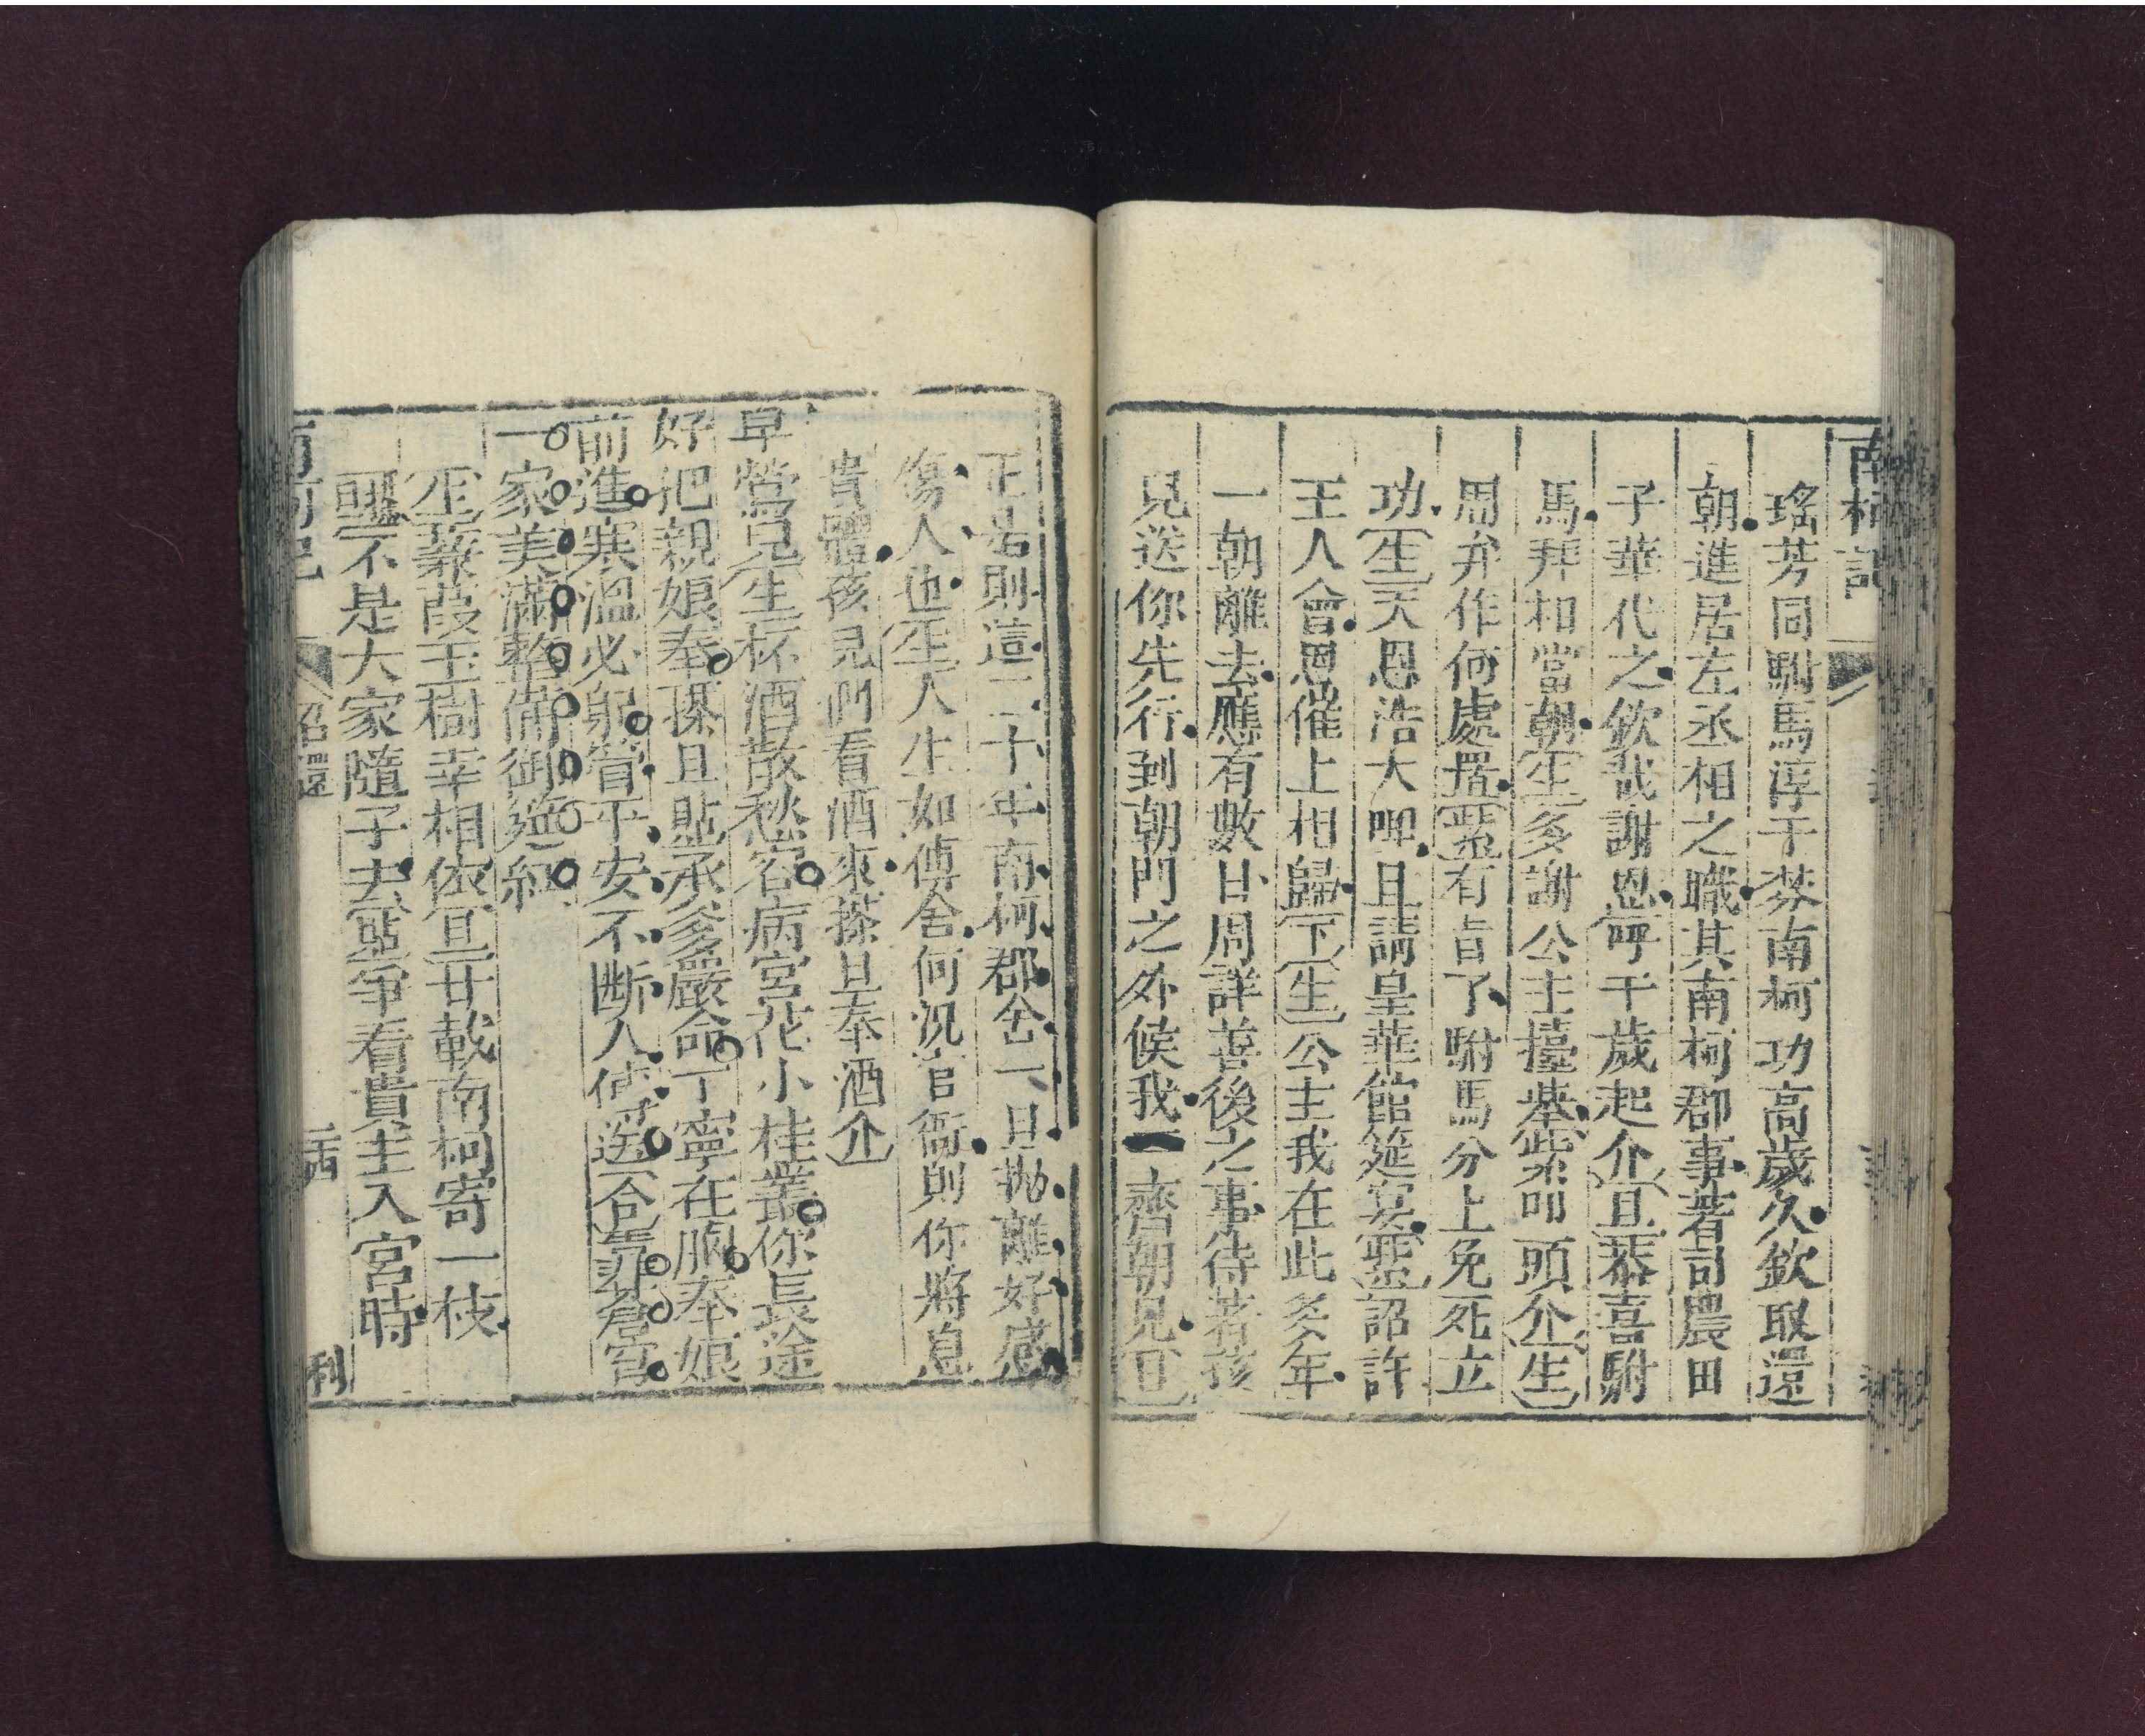 南柯記
瑤芳同駙馬淳于棼南柯功高歲久欽取還
朝進居左丞相之職其南柯郡事著司農田
子華代之欽哉謝恩呼千歲起介旦恭喜駙
馬拜相當朝生多謝公主擡舉紫叩頭介生
周弁作何處置紫有旨了駙馬分上免死立
功生天恩浩大呷且請皇華館筵宴紫詔許
王人會恩催上相歸下生公主我在此多年
一朝離去應有數日周詳善後之事待著孩
兒送你先行到朝門之外候我一齊朝見旦
正是則這二十年南柯郡舍一旦拋離好感
傷人也生人生如傳舍何況官衙則你將息
貴體孩兒們看酒來搽旦奉酒介
早鶯兒生杯酒散愁容病宮花小桂叢你長途
好把親娘奉搽旦貼承爹嚴命丁寧在胸奉娘
前進寒溫必躬管平安不斷人傳送合靠蒼穹
一家美滿整備御筵紅
生蒹葭玉樹幸相依旦廿載南柯寄一枝
貼不是大家隨子去眾爭看貴主入宮時
南柯記
召還
利